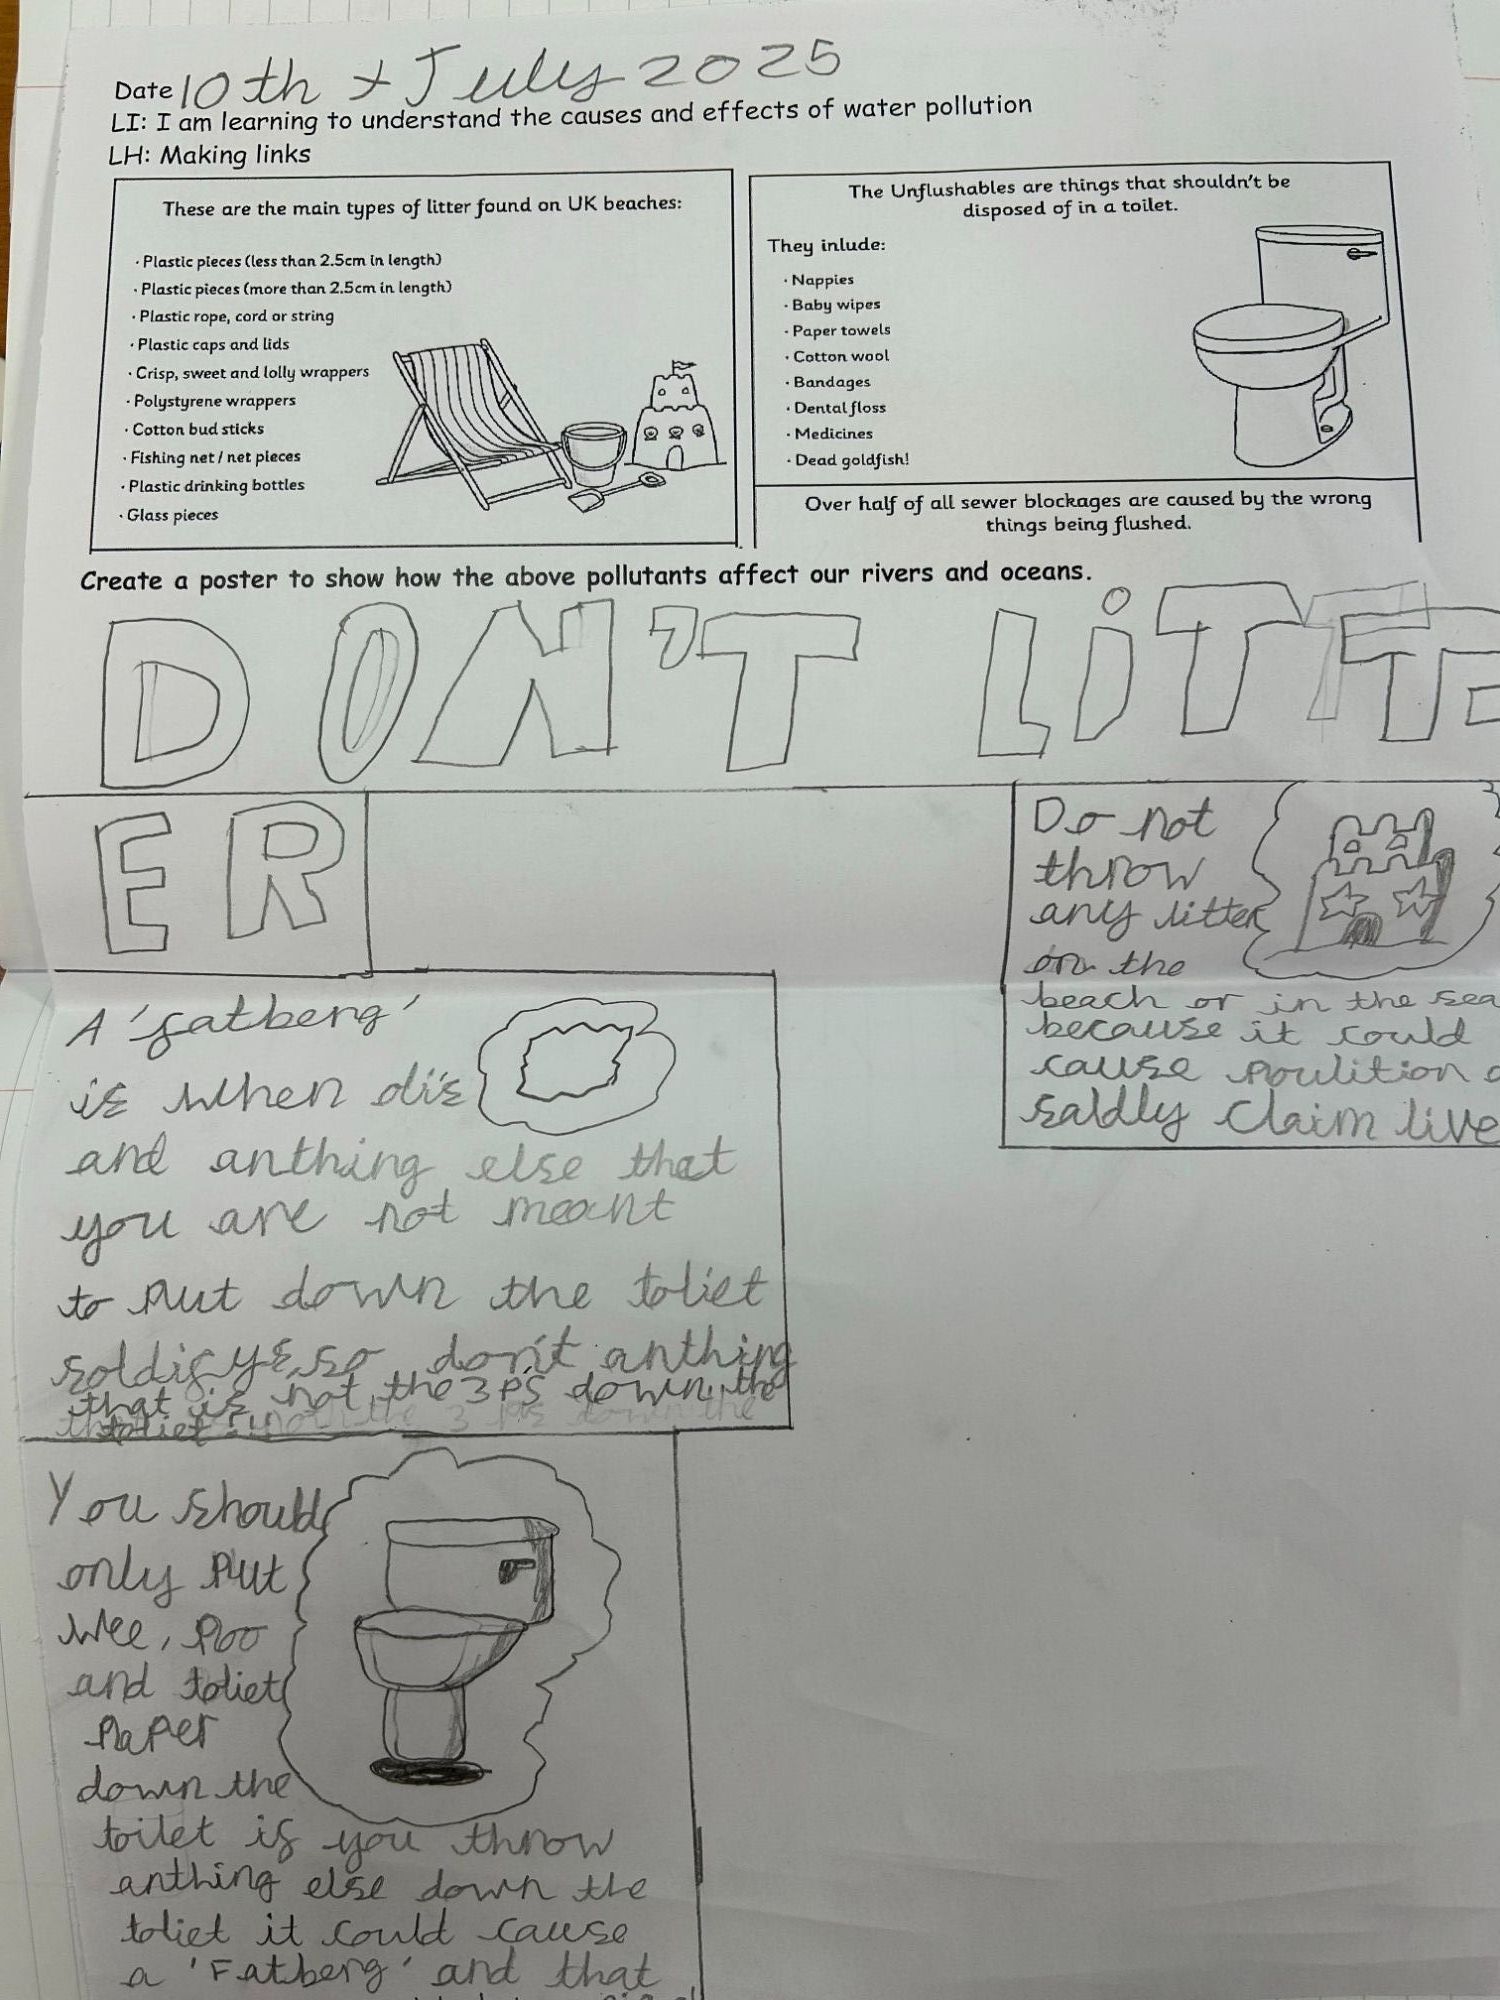 Date 10th July 2025
LI: I am learning to understand the causes and effects of water pollution
LH: Making links
These are the main types of litter found on UK beaches:
· Plastic pieces (less than 2.5cm in length)
· Plastic pieces (more than 2.5cm in length)
· Plastic rope, cord or string
· Plastic caps and lids
· Crisp, sweet and lolly wrappers
· Polystyrene wrappers
· Cotton bud sticks
· Fishing net / net pieces
· Plastic drinking bottles
· Glass pieces
The Unflushables are things that shouldn't be
disposed of in a toilet.
They inlude:
· Nappies
· Baby wipes
· Paper towels
· Cotton wool
· Bandages
· Dental floss
· Medicines
· Dead goldfish!
Over half of all sewer blockages are caused by the wrong
things being flushed.
Create a poster to show how the above pollutants affect our rivers and oceans.
DON'T LiTT
ER
Do not
throw
any litter
on the
beach or in the sea
because it could
cause poulition
saldly claim live
A 'fatberg'
is when
and anthing else that
you are not meant
to put down the toliet
soldifys, so don't anthing
that is not the 3 P's down the
toliet!!
You should
only put
wee, poo
and toliet
paper
down the
toilet if you throw
anthing else down the
toliet it could cause
a 'Fatberg' and that